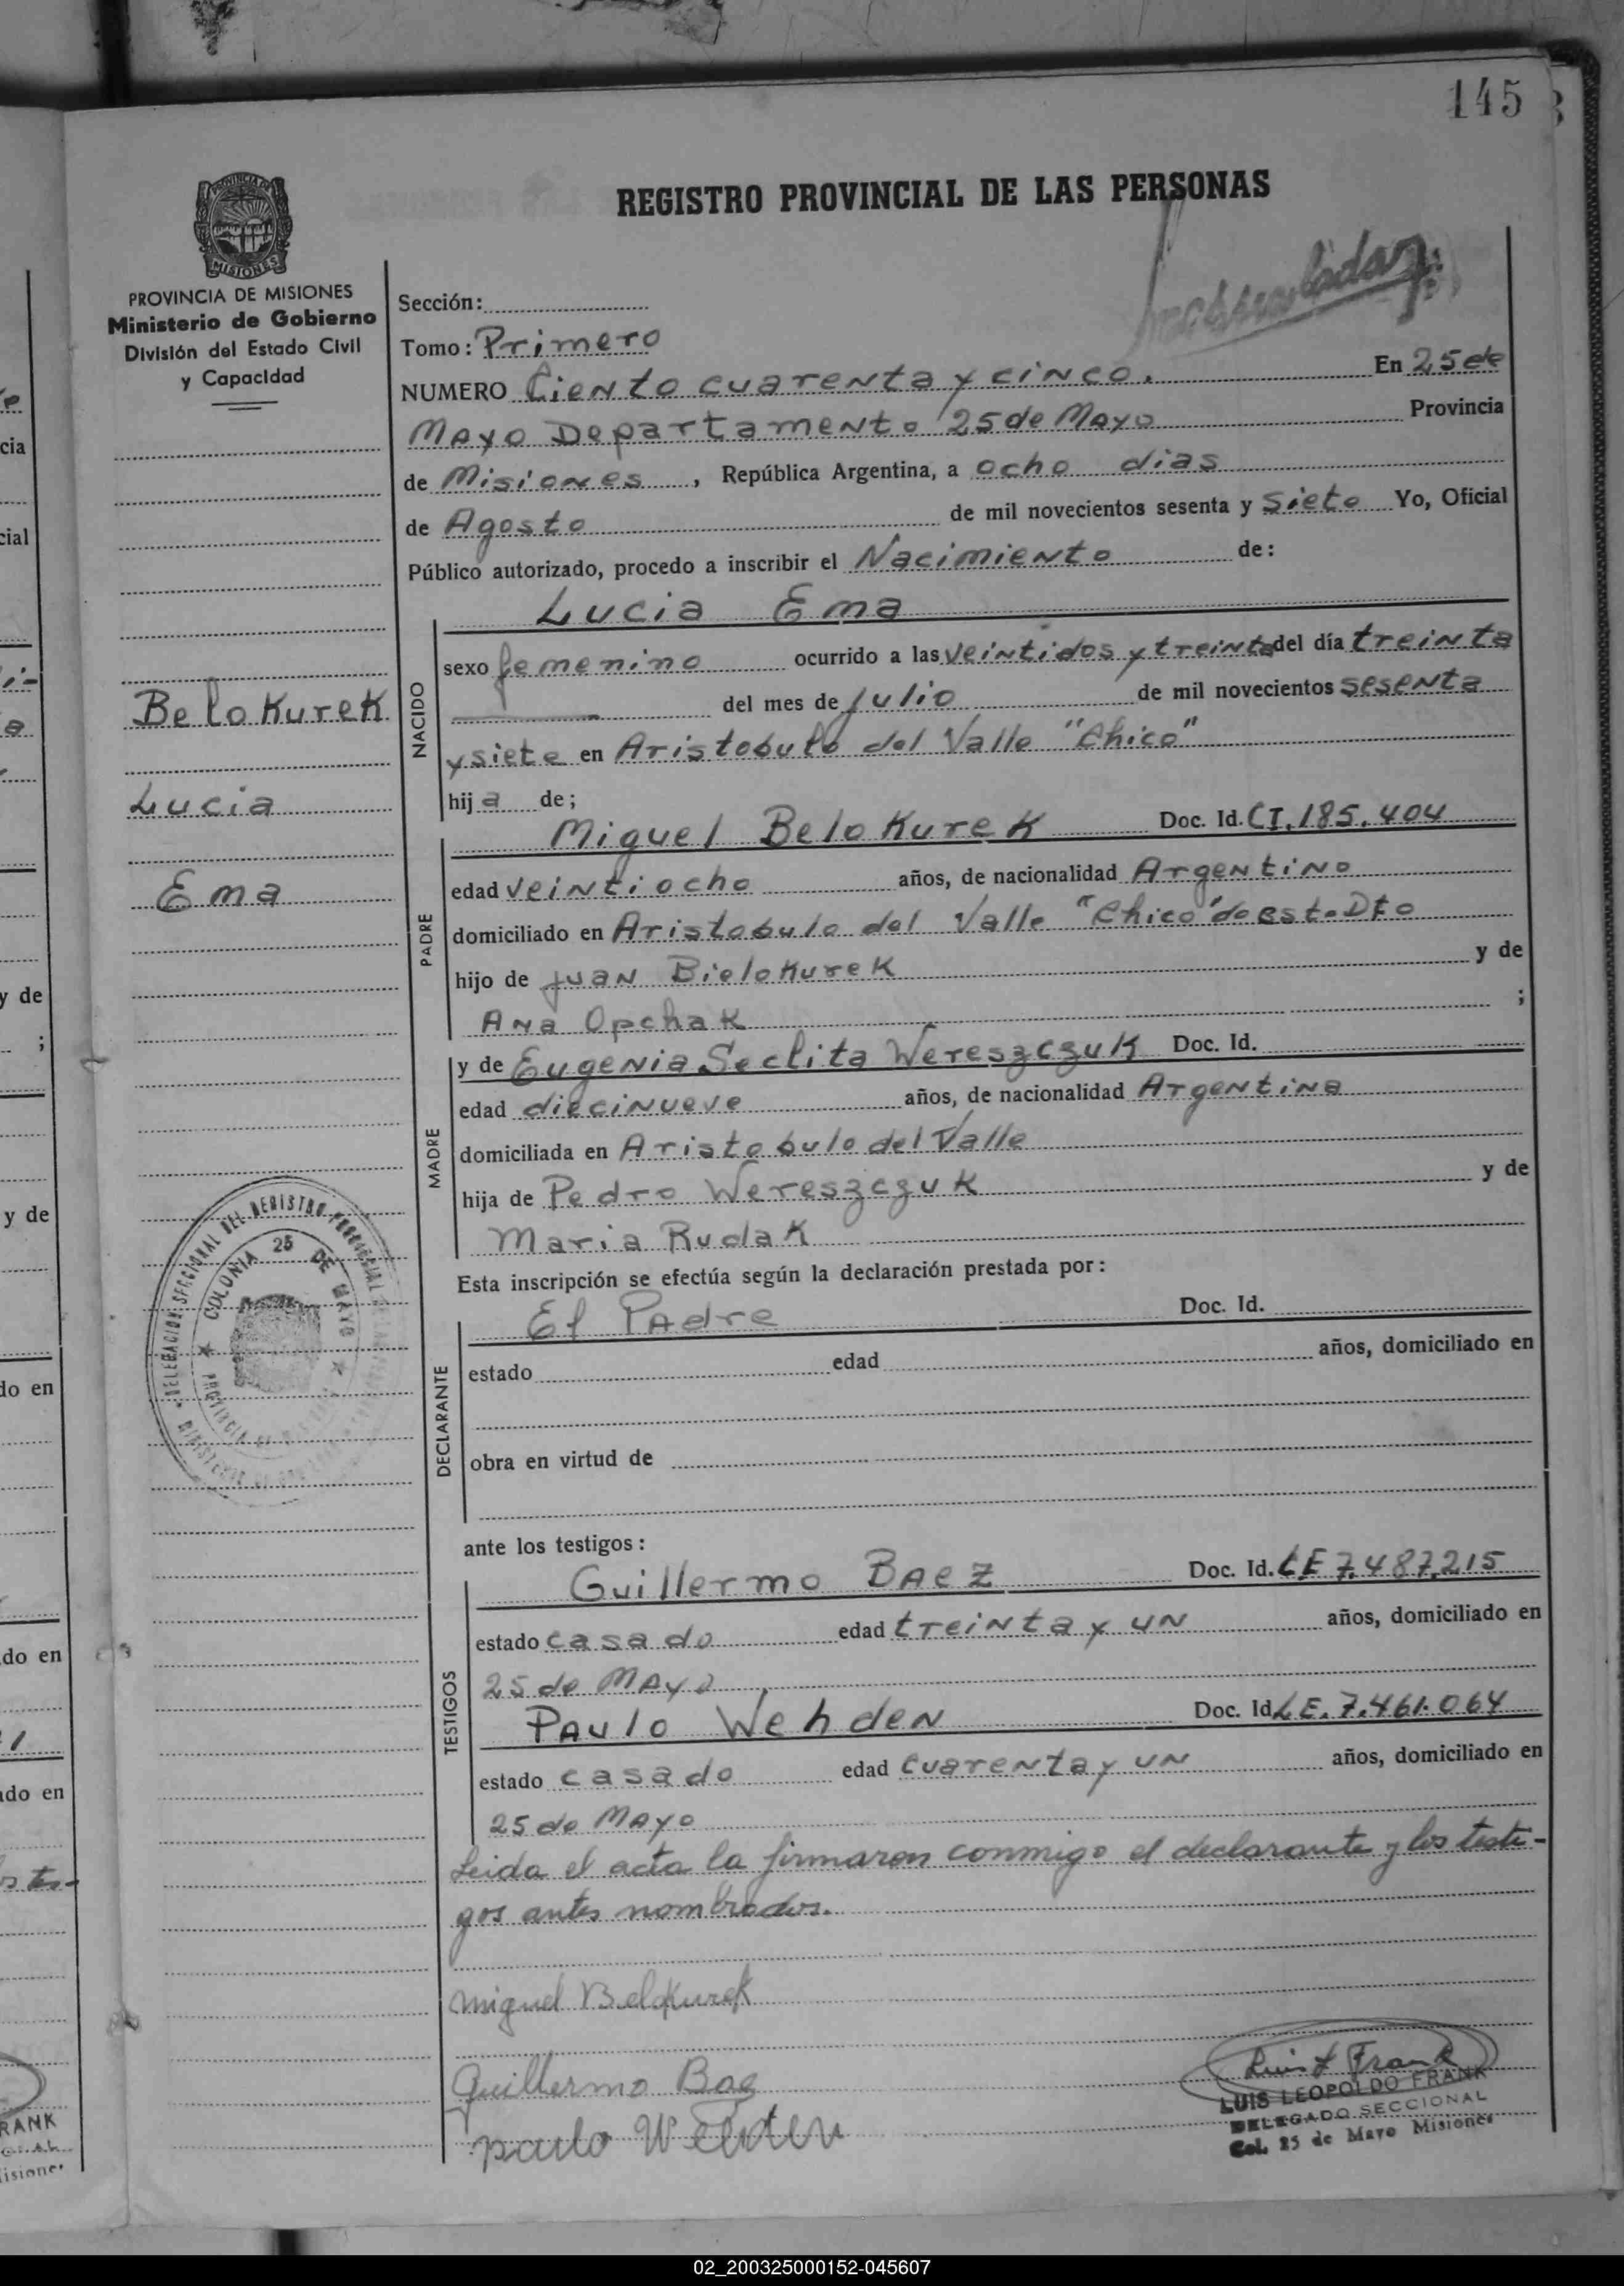 145
REGISTRO PROVINCIAL DE LAS PERSONAS
PROVINCIA DE
MISIONES
PROVINCIA DE MISIONES
Ministerio de Gobierno
División del Estado Civil
y Capacidad
Sección:
Tomo: Primero
NUMERO Ciento cuarenta y cinco. En 25 de
Mayo Departamento 25 de Mayo Provincia
de Misiones, República Argentina, a ocho dias
de Agosto de mil novecientos sesenta y siete Yo, Oficial
Público autorizado, procedo a inscribir el Nacimiento de:
Lucia Ema
NACIDO
sexo femenino ocurrido a las veintidos y treinta del día treinta
del mes de julio de mil novecientos sesenta
y siete en Aristobulo del Valle "Chico"
hija de;
Belokurek
Lucia
Ema
PADRE
Miguel Belokurek Doc. Id. CI. 185.404
edad veintiocho años, de nacionalidad Argentino
domiciliado en Aristobulo del Valle "Chico" de est. Dto
hijo de Juan Bielokurek y de
Ana Opchak ;
MADRE
y de Eugenia Seclita Wereszczuk Doc. Id.
edad diecinueve años, de nacionalidad Argentina
domiciliada en Aristobulo del Valle
hija de Pedro Wereszczuk y de
Maria Rudak
DELEGACION SECCIONAL DEL REGISTRO PROVINCIAL
COLONIA 25 DE MAYO
Esta inscripción se efectúa según la declaración prestada por:
DECLARANTE
El Padre Doc. Id.
estado edad años, domiciliado en
obra en virtud de
ante los testigos:
TESTIGOS
Guillermo Baez Doc. Id. LE 7.487.215
estado casado edad treinta y un años, domiciliado en
25 de Mayo
Paulo Wehden Doc. Id LE. 7.461.064
estado casado edad cuarenta y un años, domiciliado en
25 de Mayo
Leida el acta la firmaron conmigo el declarante y los testi-
gos antes nombrados.
Miguel Belokurek
Guillermo Baez
paulo Wehden
Luis L Frank
LUIS LEOPOLDO FRANK
DELEGADO SECCIONAL
Col. 25 de Mayo Misiones
02_200325000152-045607